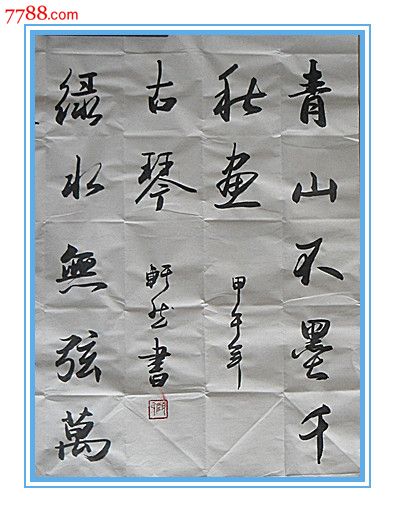 7788.com
青山不墨千
秋畫
甲午年
綠水無弦萬
古琴
軒然書